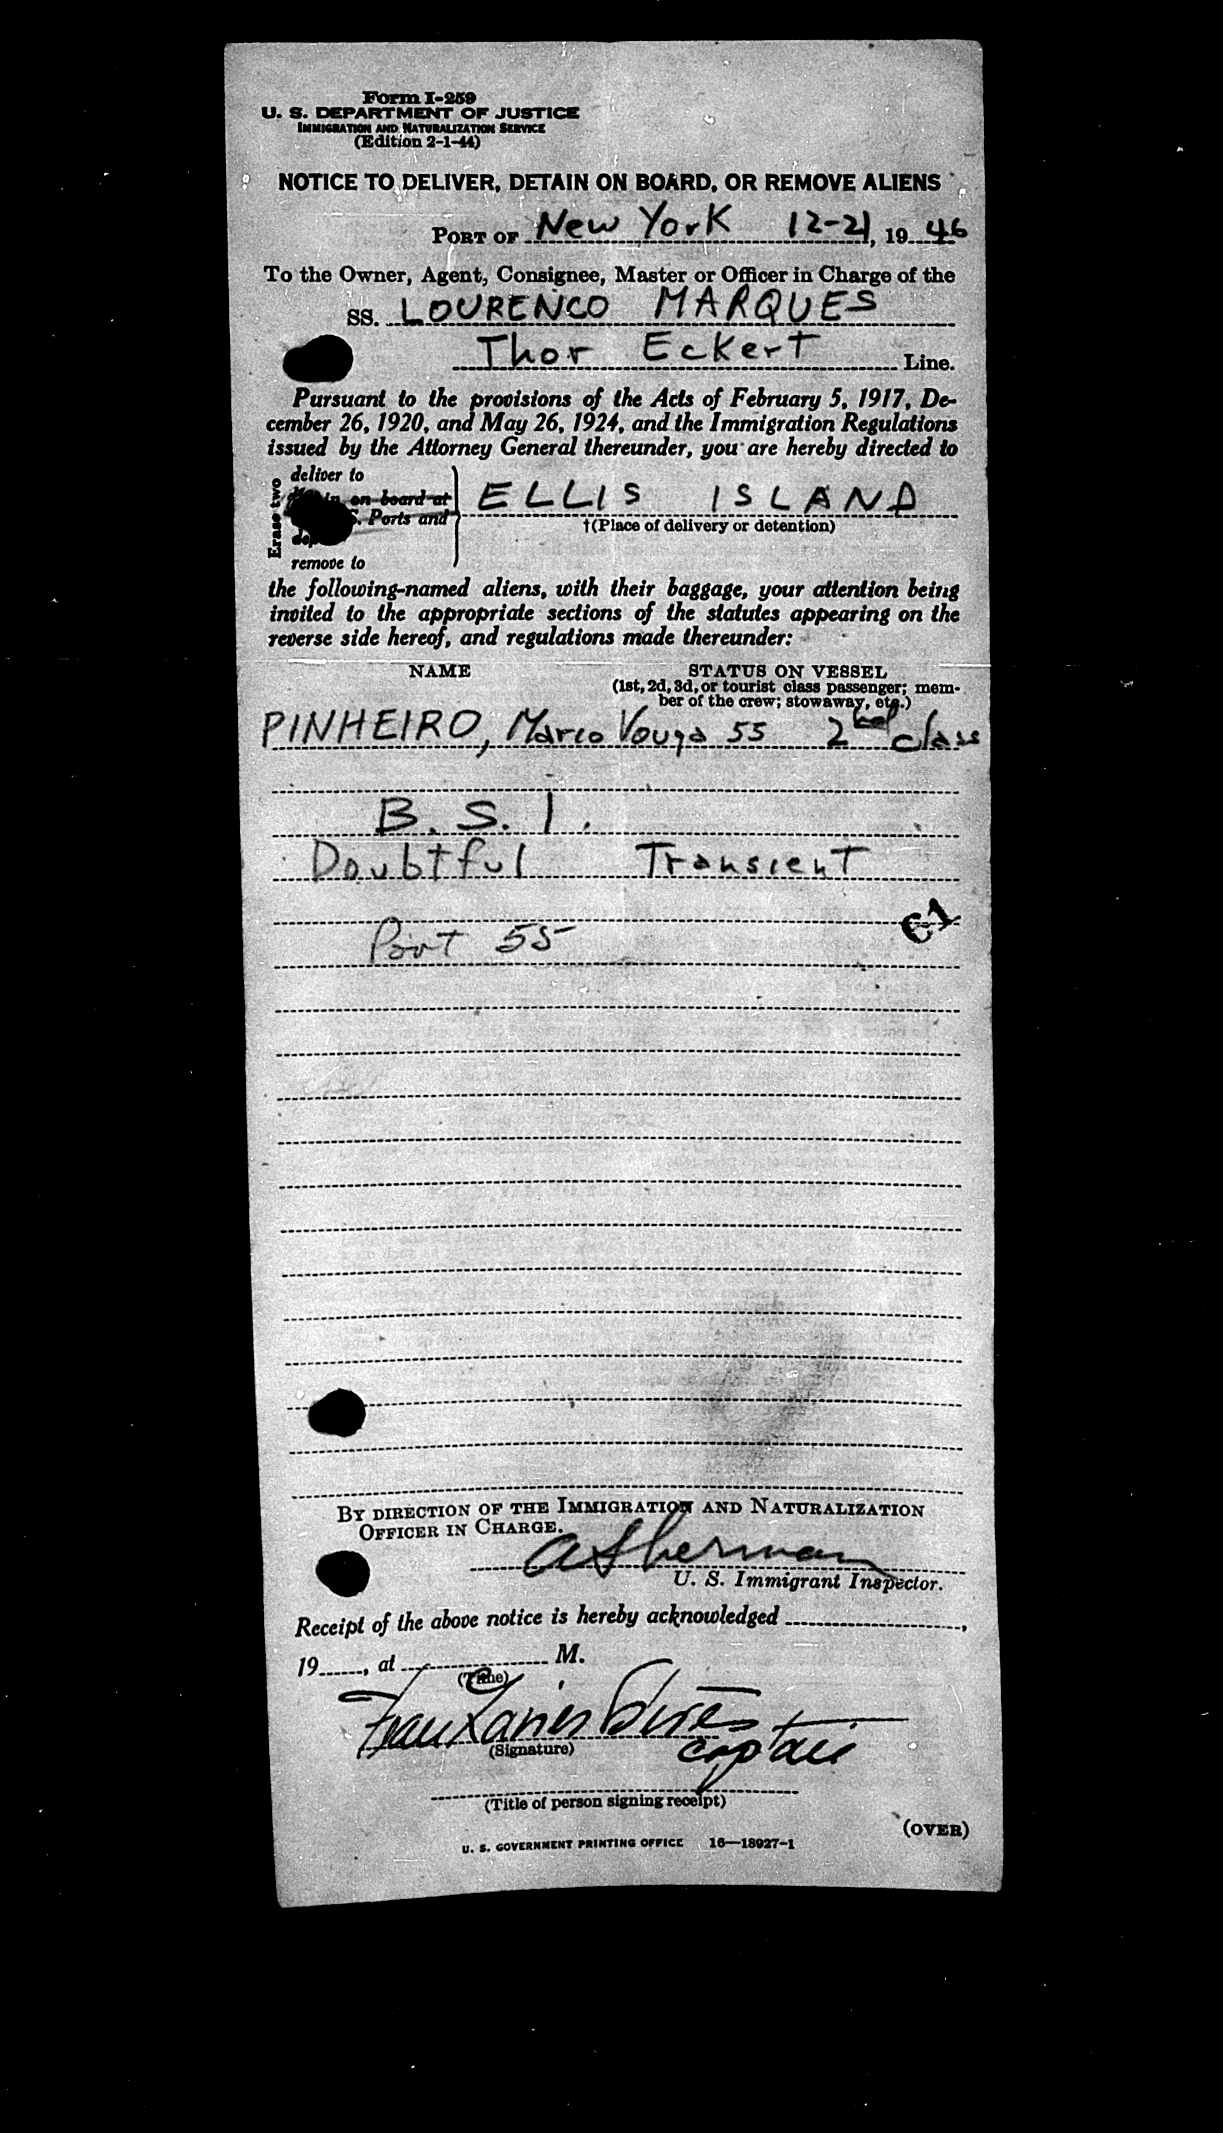 Form I-259
U. S. DEPARTMENT OF JUSTICE
IMMIGRATION AND NATURALIZATION SERVICE
(Edition 2-1-44)
NOTICE TO DELIVER, DETAIN ON BOARD, OR REMOVE ALIENS
PORT OF New York 12-21, 19 46
To the Owner, Agent, Consignee, Master or Officer in Charge of the
SS. LOURENCO MARQUES
Thor Eckert Line.
Pursuant to the provisions of the Acts of February 5, 1917, De-
cember 26, 1920, and May 26, 1924, and the Immigration Regulations
issued by the Attorney General thereunder, you are hereby directed to
Erase two
deliver to
on board at
ELLIS ISLAND
S. Ports and
†(Place of delivery or detention)
remove to
the following-named aliens, with their baggage, your attention being
invited to the appropriate sections of the statutes appearing on the
reverse side hereof, and regulations made thereunder:
NAME STATUS ON VESSEL
(1st, 2d, 3d, or tourist class passenger; mem-
ber of the crew; stowaway, etc.)
PINHEIRO, Marco Vouga 55 2nd class
B. S. I.
Doubtful Transient
Port 55
BY DIRECTION OF THE IMMIGRATION AND NATURALIZATION
OFFICER IN CHARGE.
A Sherman
U. S. Immigrant Inspector.
Receipt of the above notice is hereby acknowledged
19, at M.
(Time)
(Signature)
Captain
(Title of person signing receipt)
(OVER)
U. S. GOVERNMENT PRINTING OFFICE 16—18927-1